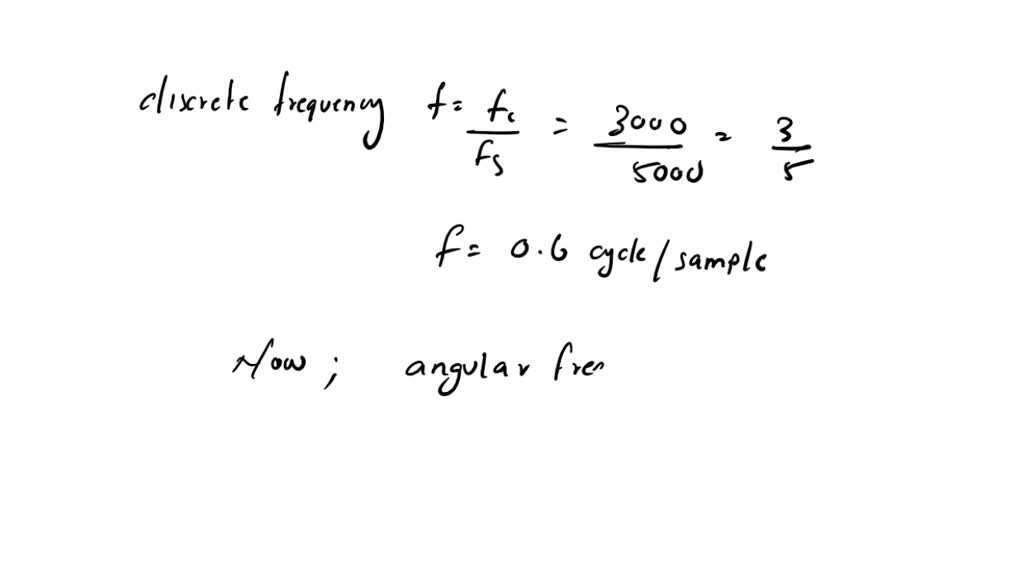 discrete frequency f = fc / fs = 3000 / 5000 = 3 / 5
f = 0.6 cycle/sample
Now ; angular fre